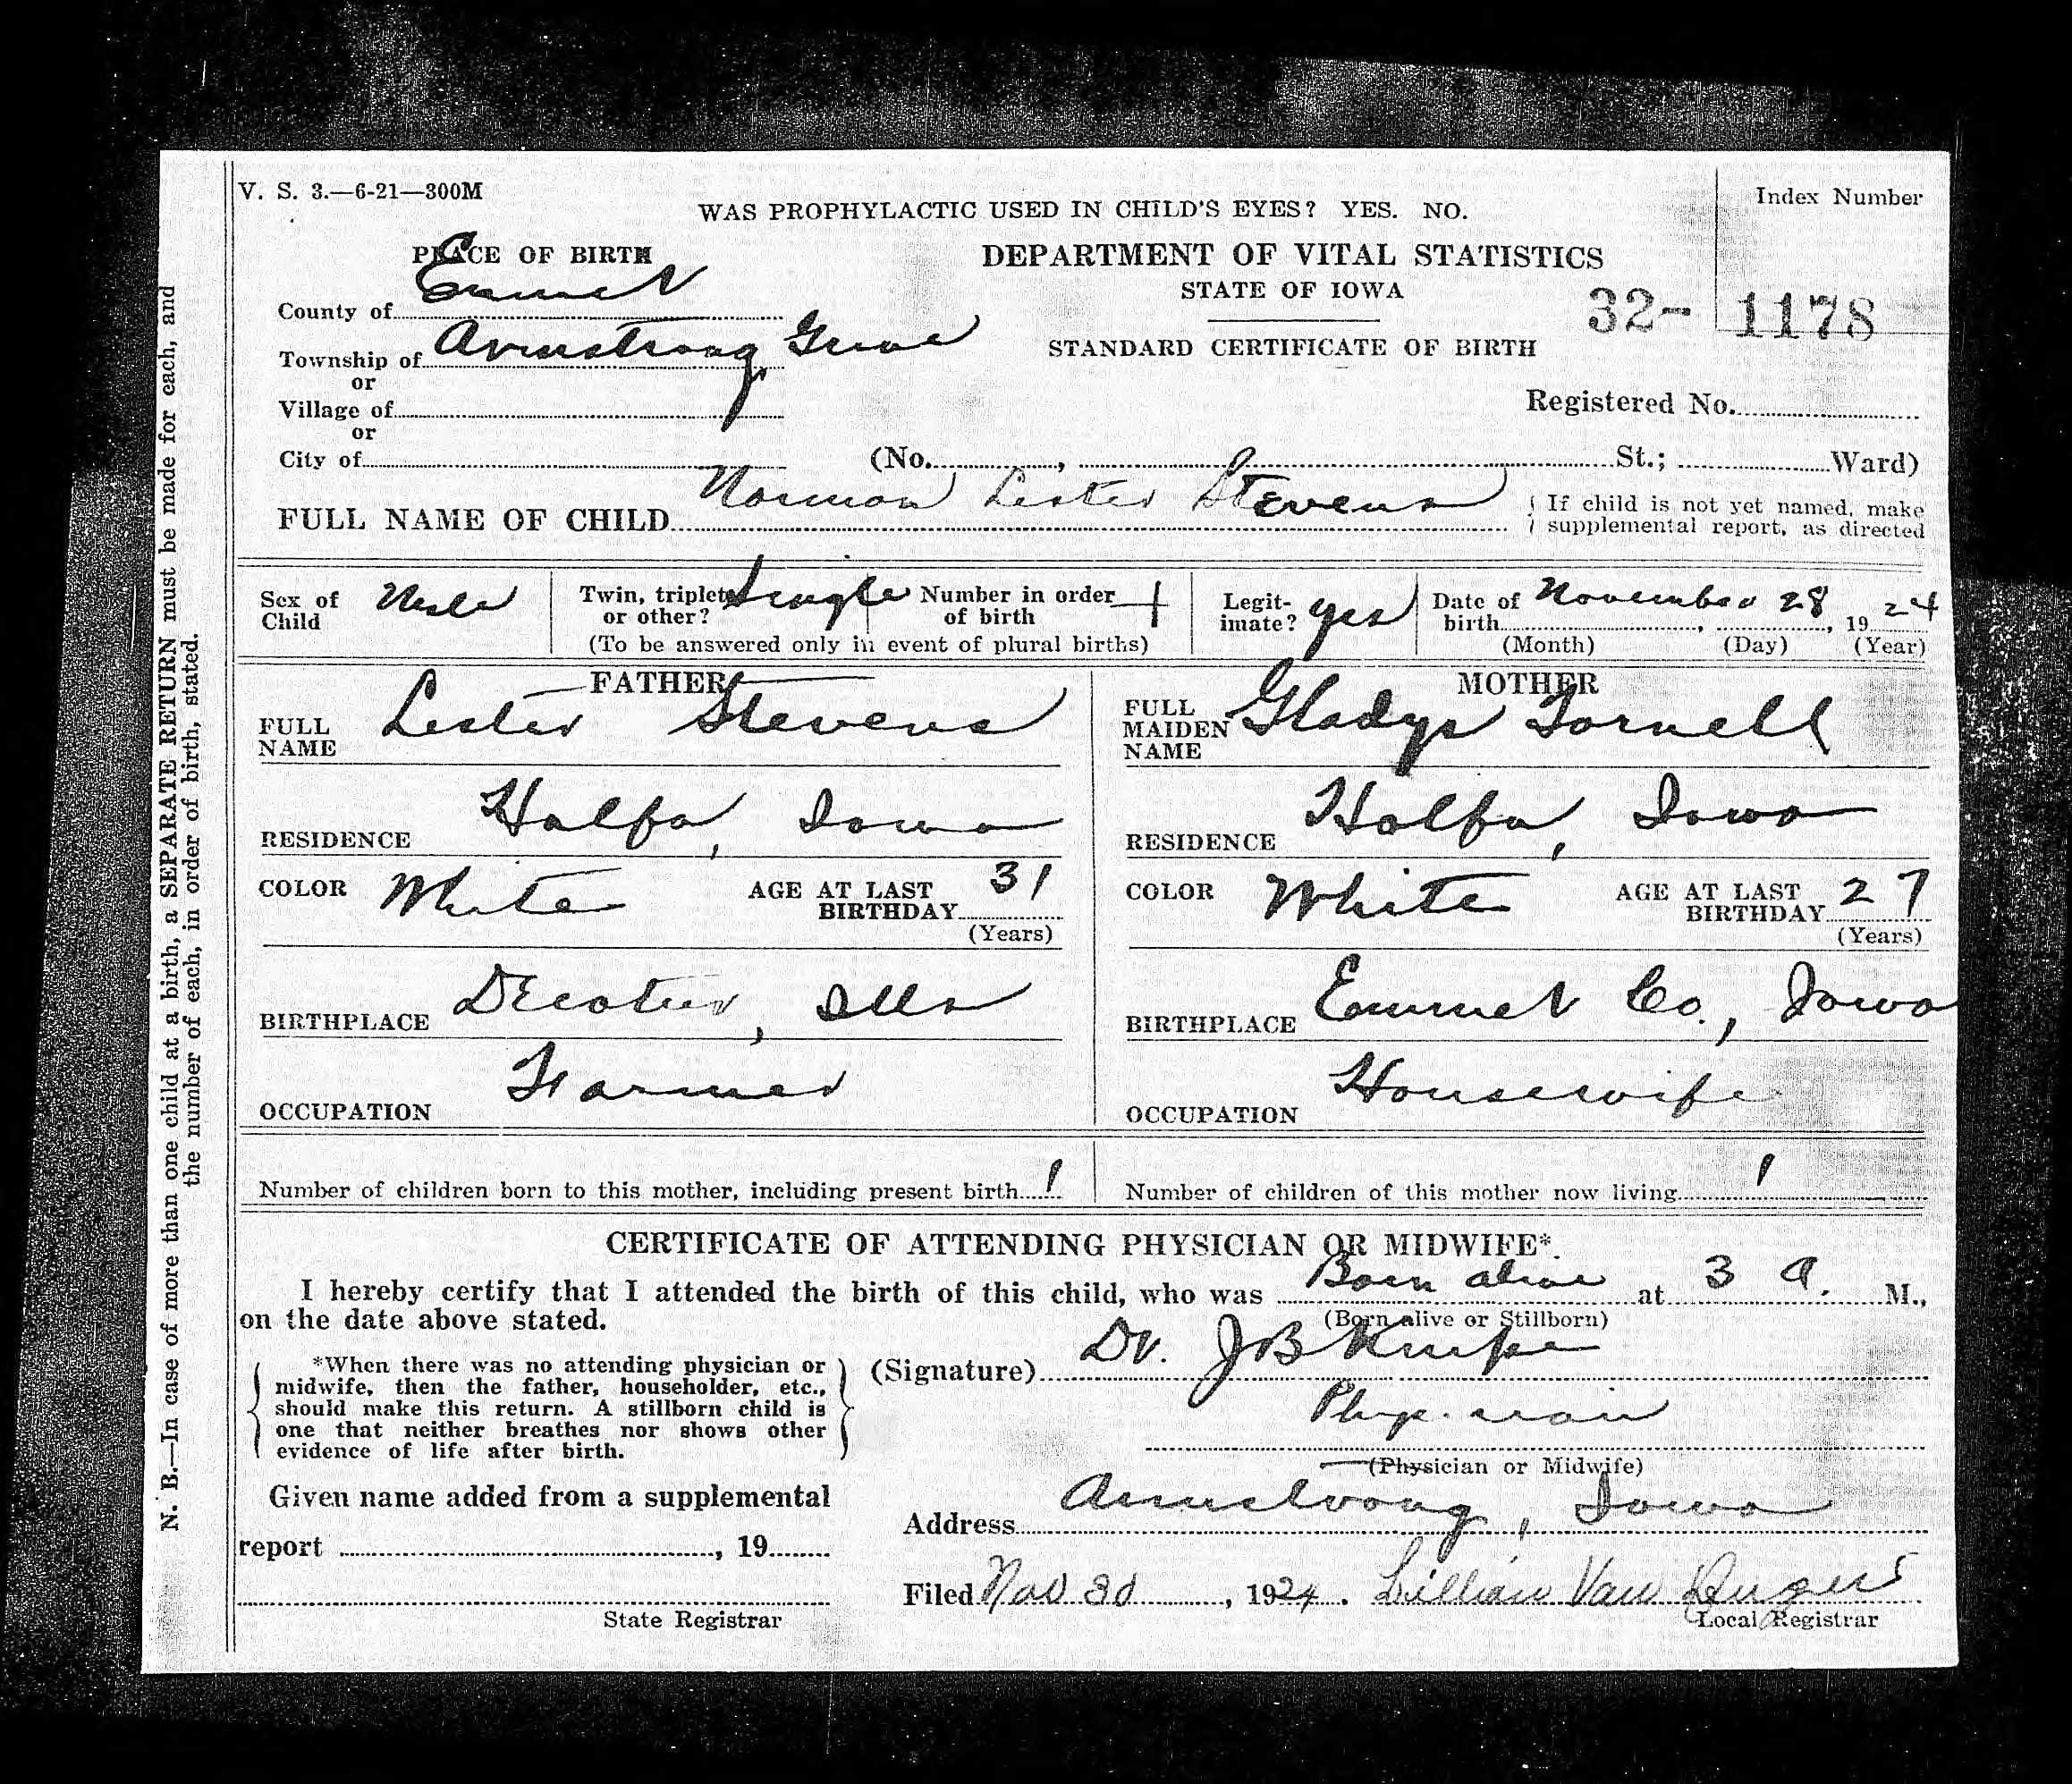 V. S. 3.—6-21—300M
WAS PROPHYLACTIC USED IN CHILD'S EYES? YES. NO.
Index Number
PLACE OF BIRTH
DEPARTMENT OF VITAL STATISTICS
STATE OF IOWA
32- 1178
County of Emmet
STANDARD CERTIFICATE OF BIRTH
Township of Armstrong Grove
or
Village of
Registered No.
or
City of
(No. , St.; Ward)
FULL NAME OF CHILD Norman Lester Stevens
{ If child is not yet named, make
supplemental report, as directed
Sex of Child Male
Twin, triplet or other? Single
Number in order of birth 1
(To be answered only in event of plural births)
Legit-imate? yes
Date of birth November 28, 1924
(Month) (Day) (Year)
FATHER
FULL NAME Lester Stevens
RESIDENCE Halfa, Iowa
COLOR White AGE AT LAST BIRTHDAY 31
(Years)
BIRTHPLACE Decatur, Ills
OCCUPATION Farmer
MOTHER
FULL MAIDEN NAME Gladys Tornell
RESIDENCE Halfa, Iowa
COLOR White AGE AT LAST BIRTHDAY 27
(Years)
BIRTHPLACE Emmet Co., Iowa
OCCUPATION Housewife
Number of children born to this mother, including present birth 1
Number of children of this mother now living 1
CERTIFICATE OF ATTENDING PHYSICIAN OR MIDWIFE*.
I hereby certify that I attended the birth of this child, who was Born alive at 3 A. M.,
(Born alive or Stillborn)
on the date above stated.
*When there was no attending physician or
midwife, then the father, householder, etc.,
should make this return. A stillborn child is
one that neither breathes nor shows other
evidence of life after birth.
(Signature) Dr. J B
Physician
(Physician or Midwife)
Given name added from a supplemental
report , 19
State Registrar
Address Armstrong, Iowa
Filed Nov 30, 1924. Lillian Van
Local Registrar
N. B.—In case of more than one child at a birth, a SEPARATE RETURN must be made for each, and
the number of each, in order of birth, stated.